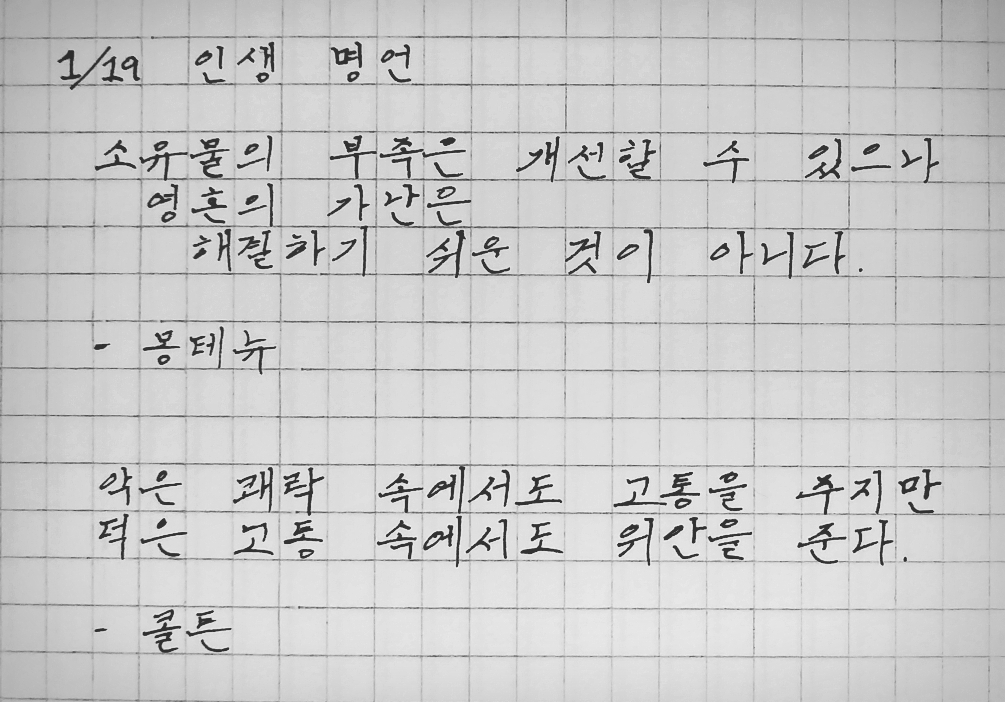 1/19 인생 명언
소유물의 부족은 개선할 수 있으나
영혼의 가난은
해결하기 쉬운 것이 아니다.
- 몽테뉴
악은 쾌락 속에서도 고통을 주지만
덕은 고통 속에서도 위안을 준다.
- 콜튼